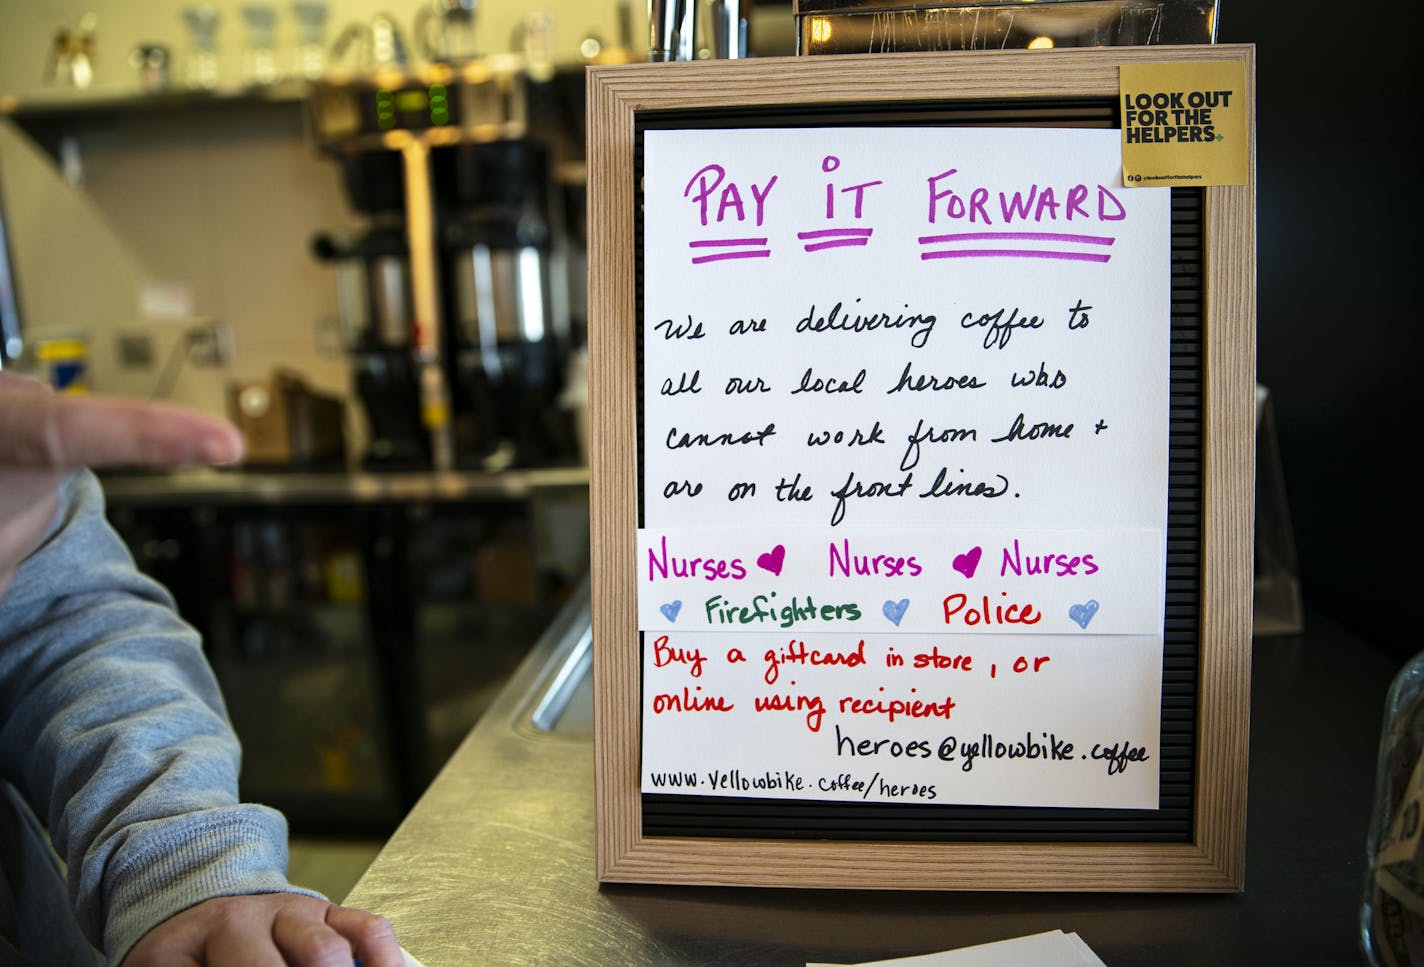 LOOK OUT
FOR THE
HELPERS+
@lookoutforthehelpers
PAY IT FORWARD
We are delivering coffee to
all our local heroes who
cannot work from home +
are on the front lines.
Nurses ♥ Nurses ♥ Nurses
♥ Firefighters ♥ Police ♥
Buy a giftcard in store, or
online using recipient
heroes@yellowbike.coffee
www.yellowbike.coffee/heroes